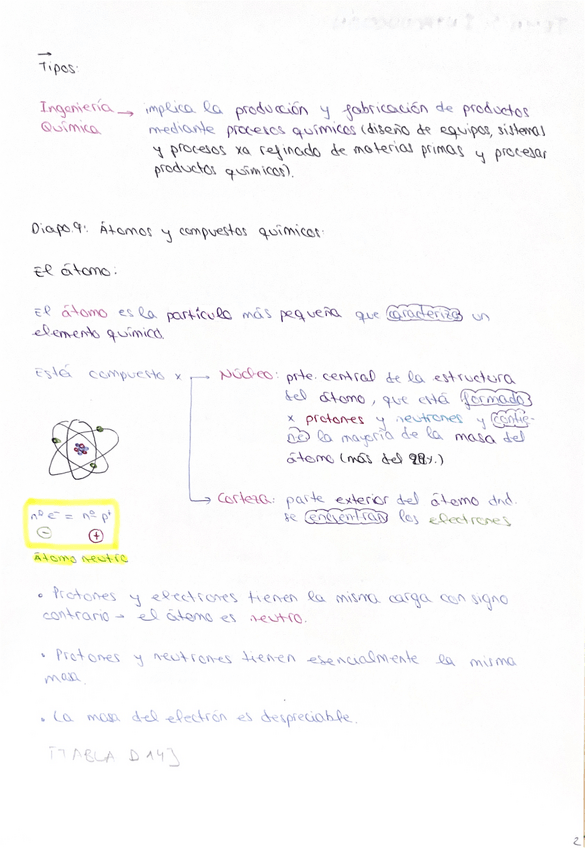 Tipos:
Ingeniería → implica la producción y fabricación de productos
Química mediante procesos químicos (diseño de equipos, sistemas
y procesos xa refinado de materias primas y procesar
productos químicos).
Diapo.9: Átomos y compuestos químicos:
El átomo:
El átomo es la partícula más pequeña que caracteriza un
elemento químico.
Está compuesto x
→ Núcleo: prte. central de la estructura
del átomo, que está formado
x protones y neutrones y contie-
ne la mayoría de la masa del
átomo (más del 99%.)
→ Corteza: parte exterior del átomo dnd.
se encuentran los electrones
nº e⁻ = nº p⁺
⊖ ⊕
Átomo neutro
• Protones y electrones tienen la misma carga con signo
contrario → el átomo es neutro.
• Protones y neutrones tienen esencialmente la misma
masa.
• La masa del electrón es despreciable.
[TABLA D14]
2